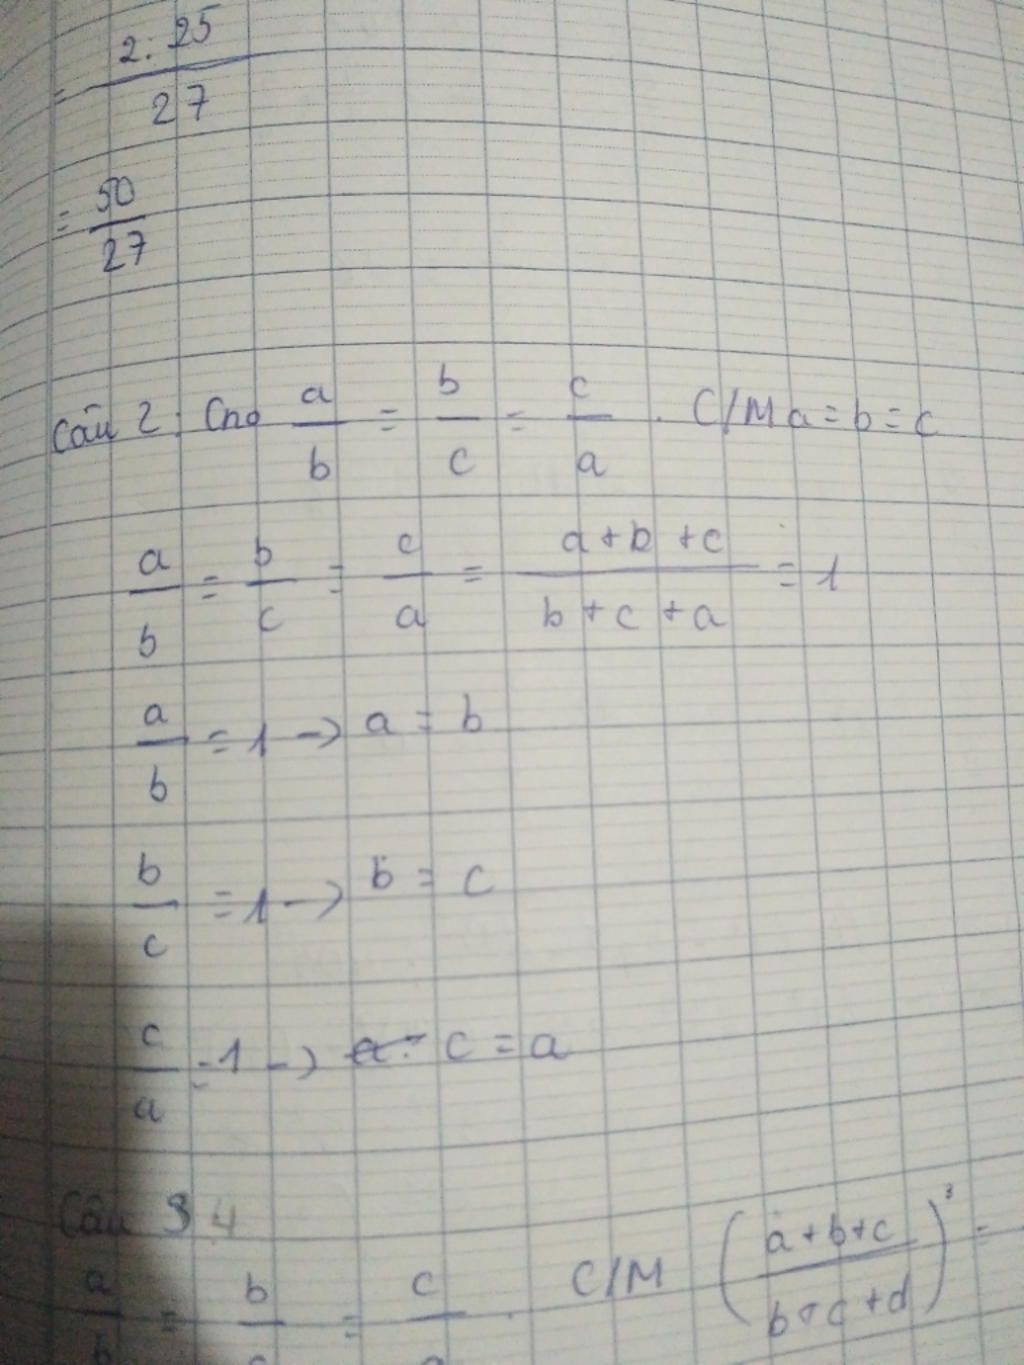 = 2 . 25 / 27
= 50 / 27
Câu 2 : Cho a/b = b/c = c/a . C/M a = b = c
a/b = b/c = c/a = a + b + c / b + c + a = 1
a/b = 1 -> a = b
b/c = 1 -> b = c
c/a = 1 -> c = a
Câu 4
a/b = b/c = c/ . C/M ( a + b + c / b + c + d )³ =